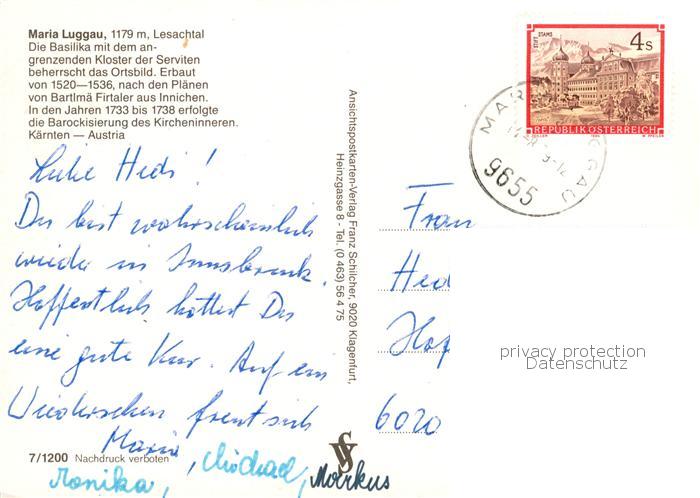 Maria Luggau, 1179 m, Lesachtal
Die Basilika mit dem an-
grenzenden Kloster der Serviten
beherrscht das Ortsbild. Erbaut
von 1520—1536, nach den Plänen
von Bartlmä Firtaler aus Innichen.
In den Jahren 1733 bis 1738 erfolgte
die Barockisierung des Kircheninneren.
Kärnten — Austria
Liebe Hedi!
Du bist wahrscheinlich
wieder in Innsbruck.
Hoffentlich hattest Du
eine gute Kur. Auf ein
Wiedersehen freut sich
Maria, Michael, Markus
Monika,
7/1200 Nachdruck verboten
Ansichtspostkarten-Verlag Franz Schilcher, 9020 Klagenfurt,
Heinzgasse 8 - Tel. (0 463) 56 4 75
STIFT STAMS
4 S
REPUBLIK ÖSTERREICH
9655
Frau
Hed
Hof
6020
privacy protection
Datenschutz